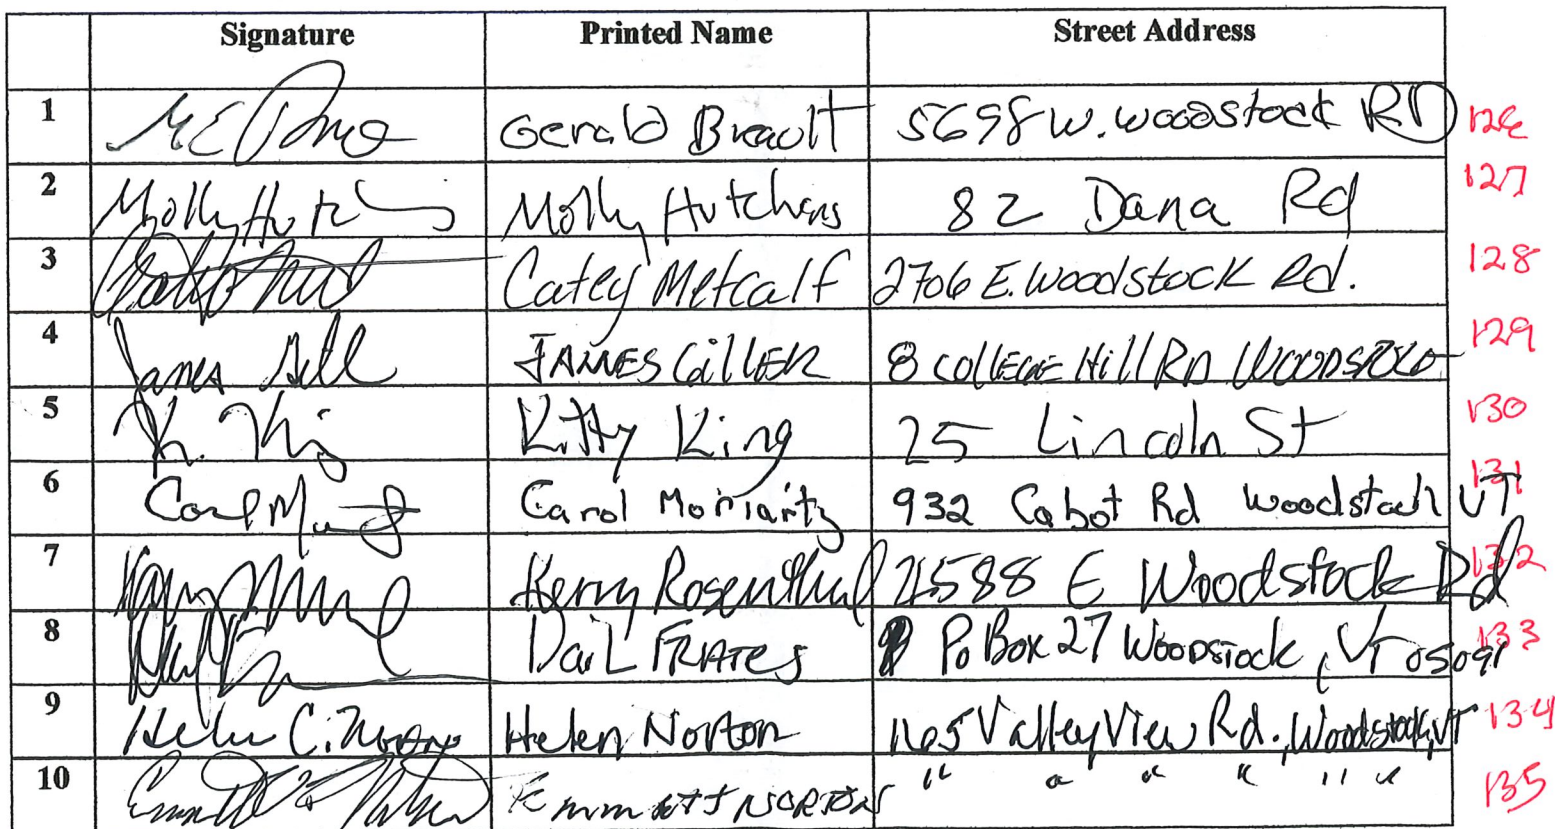 Signature Printed Name Street Address
1 Gerald Breault 5698 W. Woodstock RD 126
2 Molly Hutchins Molly Hutchins 82 Dana Rd 127
3 Catey Metcalf 2706 E. Woodstock Rd. 128
4 James JAMES GILLER 8 COLLEGE Hill RD WOODSTOCK 129
5 K. King Kitty King 25 Lincoln St 130
6 Carol Moriarty 932 Cabot Rd Woodstock VT 131
7 Kerry Rosenthal 4588 E Woodstock Rd 132
8 DaiL FRATES Po Box 27 Woodstock, VT 05091 133
9 Helen C. Norton Helen Norton 1165 Valley View Rd., Woodstock, VT 134
10 Emmett NORTON " " " " " " 135